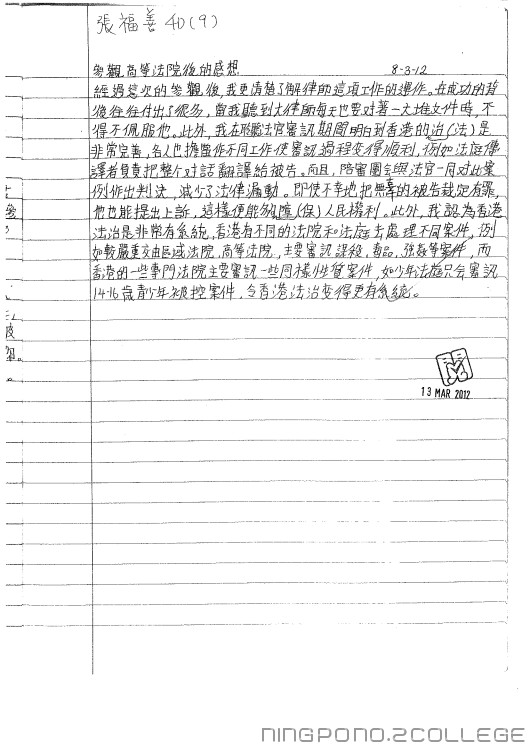 張福善 4D(9)
參觀高等法院後的感想 8-3-12
經過這次的參觀後,我更清楚了解律師這項工作的運作。在成功的背
後往往付出了很多,當我聽到大律師每天也要對著一大堆文件時,不
得不佩服他。此外,我在聆聽法官審訊期間明白到香港的治(法)是
非常完善,各人也擔當作不同工作使審訊過程變得順利,例如法庭傳
譯者負責把整个對話翻譯給被告。而且,陪審團會與法官一同對此案
例作出判決,減少了法律漏動。即使不幸地把無辜的被告裁定有罪,
他也能提出上訴,這樣便能夠障(保)人民權利。此外,我認為香港
法治是非常有系統,香港有不同的法院和法庭去處理不同案件,例
如較嚴重交由區域法院,高等法院,主要審訊謀殺,毒品,強姦等案件,而
香港的一些專門法院主要審訊一些同樣性質案件,如少年法庭只會審訊
14-16歲青少年被控案件,令香港法治變得更有系統。
閱
13 MAR 2012
NINGPONO.2COLLEGE